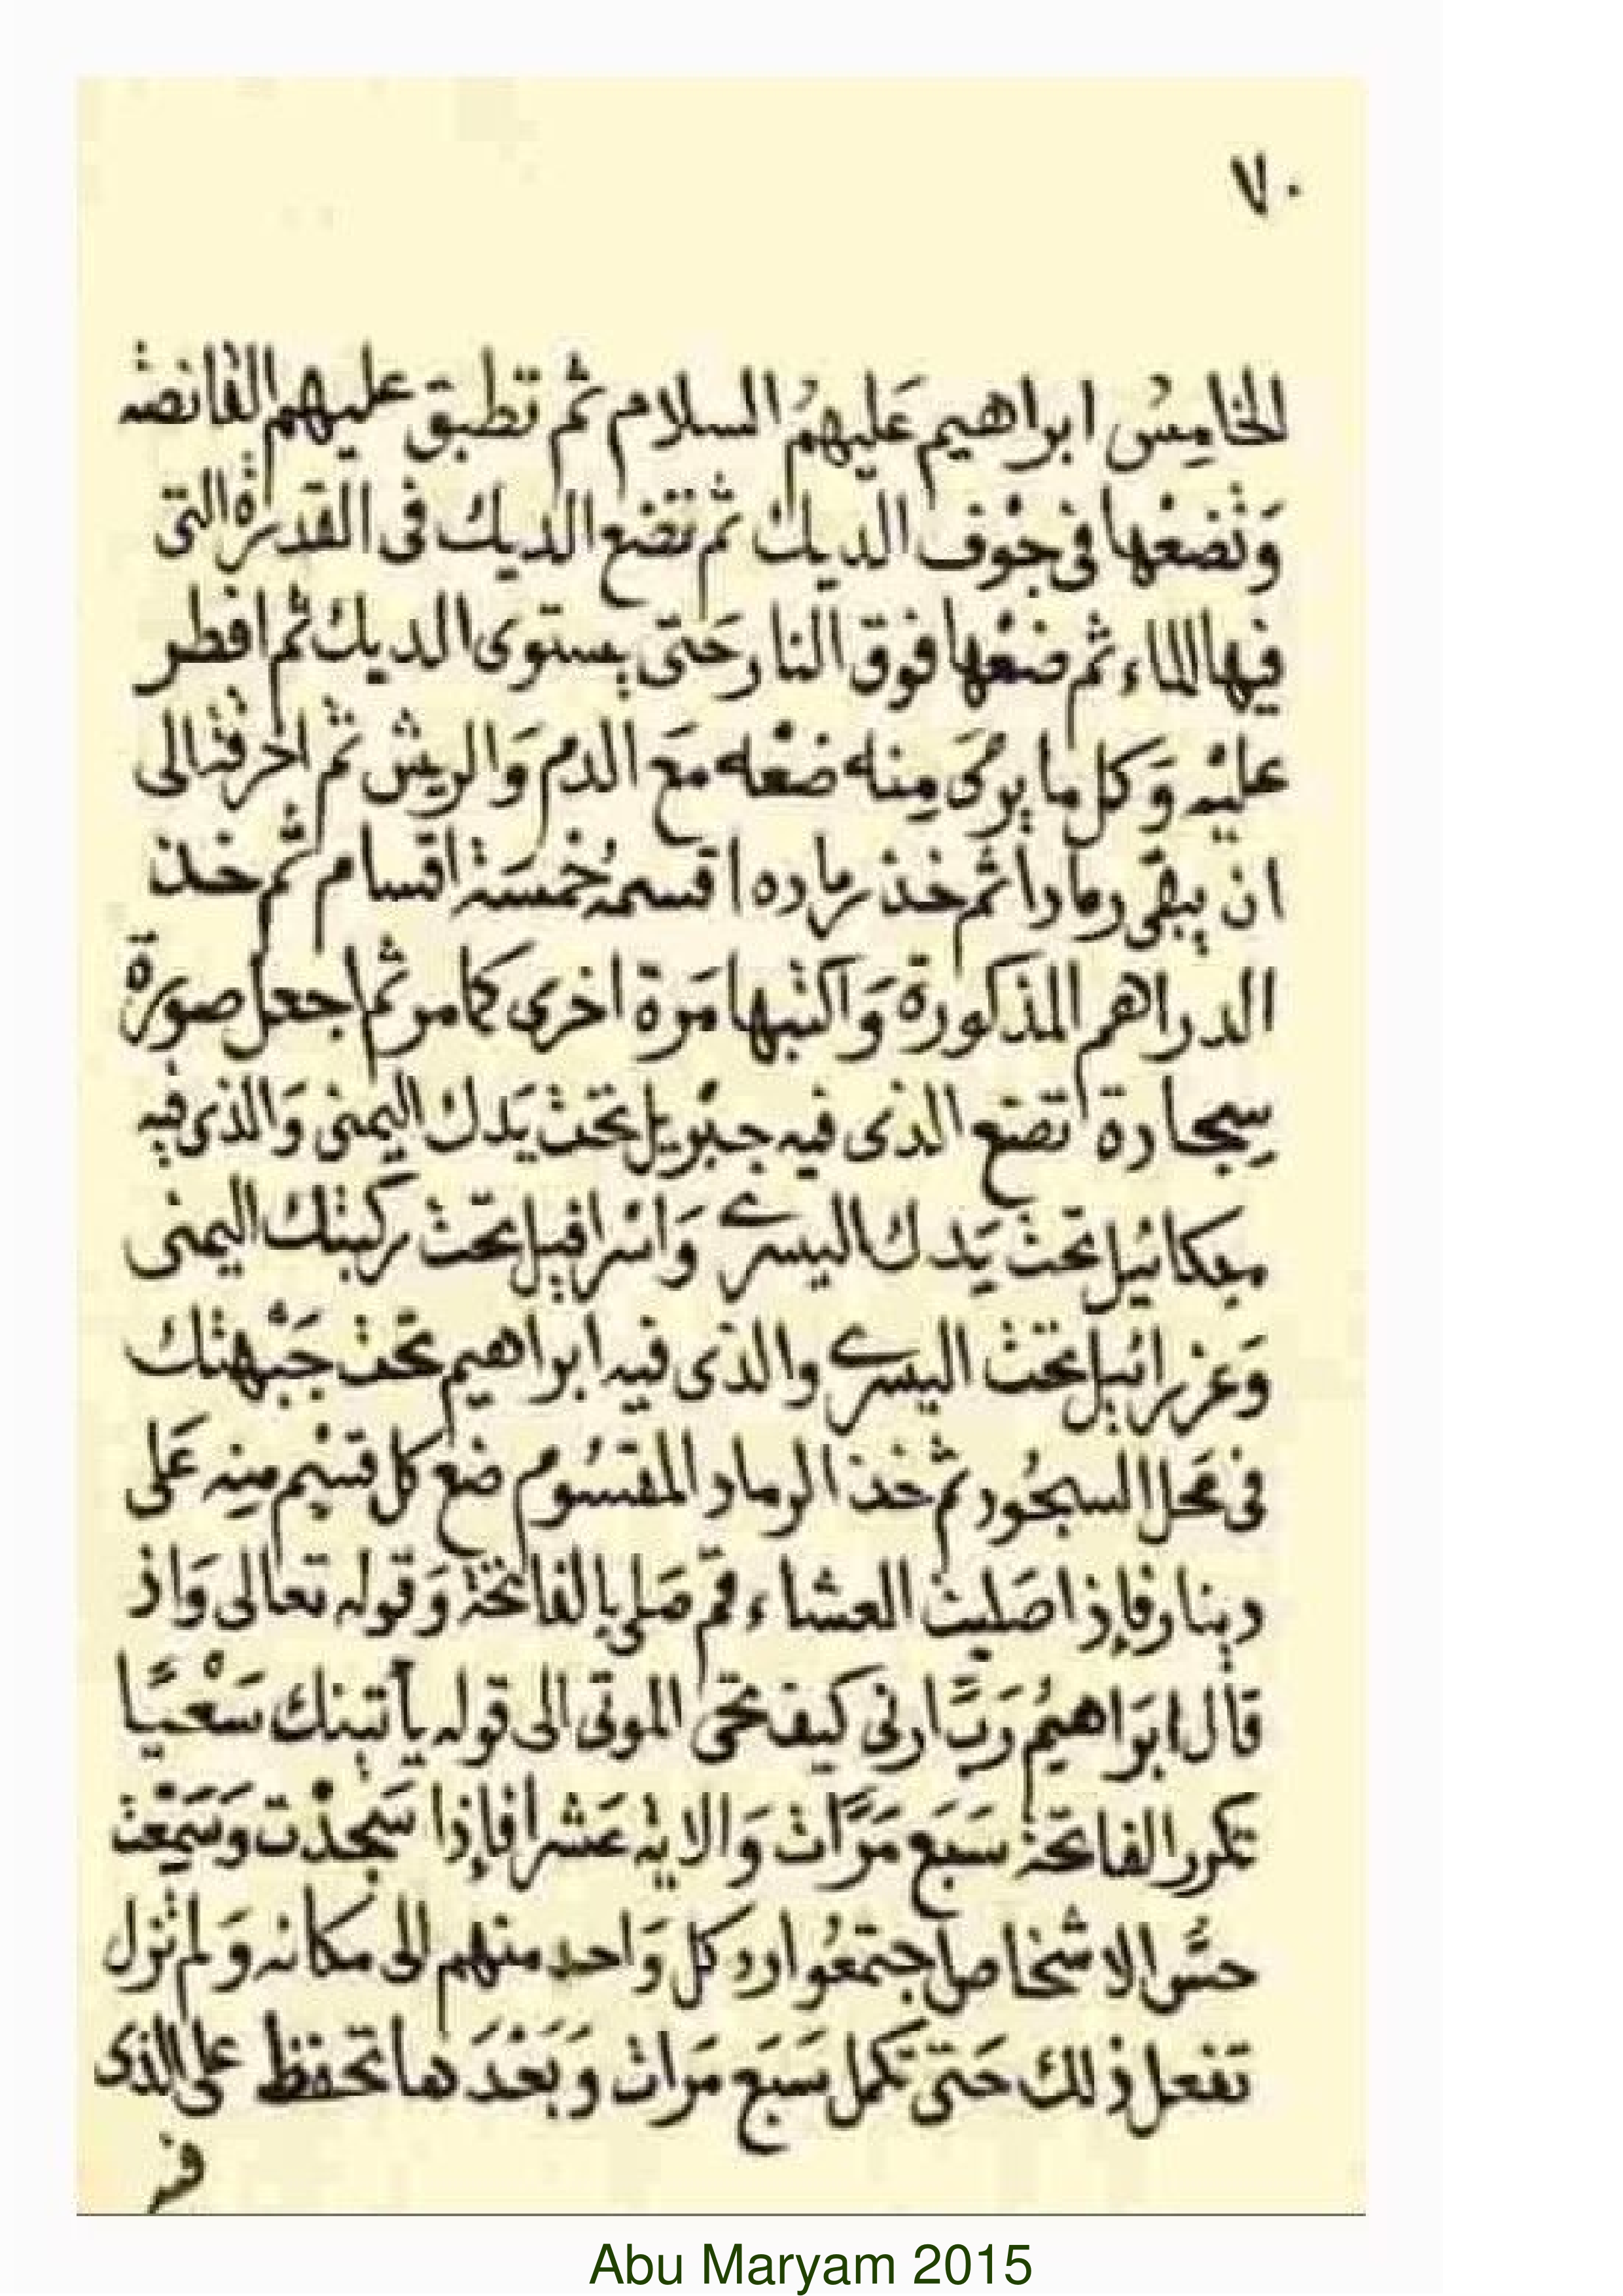 ٧٠
الخامِسُ ابراهيم عَليهمُ السلام ثم تطبق عليهم القانصة
وَتضعْها فى جوْف الديك ثم تضع الديك فى القدرة التى
فيها الماء ثم ضعْها فوق النار حَتى يستوى الديك ثم افطر
عليْه وَكل ما يرمَى مِنه ضعْه مَع الدم وَالريش ثم احرقها الى
ان يبقى رمادا ثم خذ رماده اقسمه خمسَة اقسام ثم خذ
الدراهم المذكورة وَاكتبها مَرة اخرى كما مر ثم اجعل صورة
سِجادة تضع الذى فيه جبْريل تحت يَدك اليمنى وَالذى فيه
ميكائيل تحت يَدك اليسرے وَاسْرافيل تحت ركبتك اليمنى
وَعزرائيل تحت اليسرے والذى فيه ابراهيم تحت جَبْهتك
فى محل السجُود ثم خذ الرماد المقسُوم ضع كل قسْم منه عَلى
دينار فإذا صَليت العشاء قم صَلى بالفاتحة وَقوله تعالى وَاذ
قالَ ابرَاهيمُ رَبِّ ارنى كيف تحى الموتى الى قوله يأتينك سَعْيًا
تكرر الفاتحة سَبَع مَرَّات وَالايه عَشرا فإذا سَجدْت وَسَمِعْت
حسَّ الاشخاص اجتمعُوا رد كل وَاحد منهم الى مكانه وَلم تزل
تفعل ذلك حَتى تكمل سَبَع مَرات وَبَعْدَها تحفظ على الذى
Abu Maryam 2015